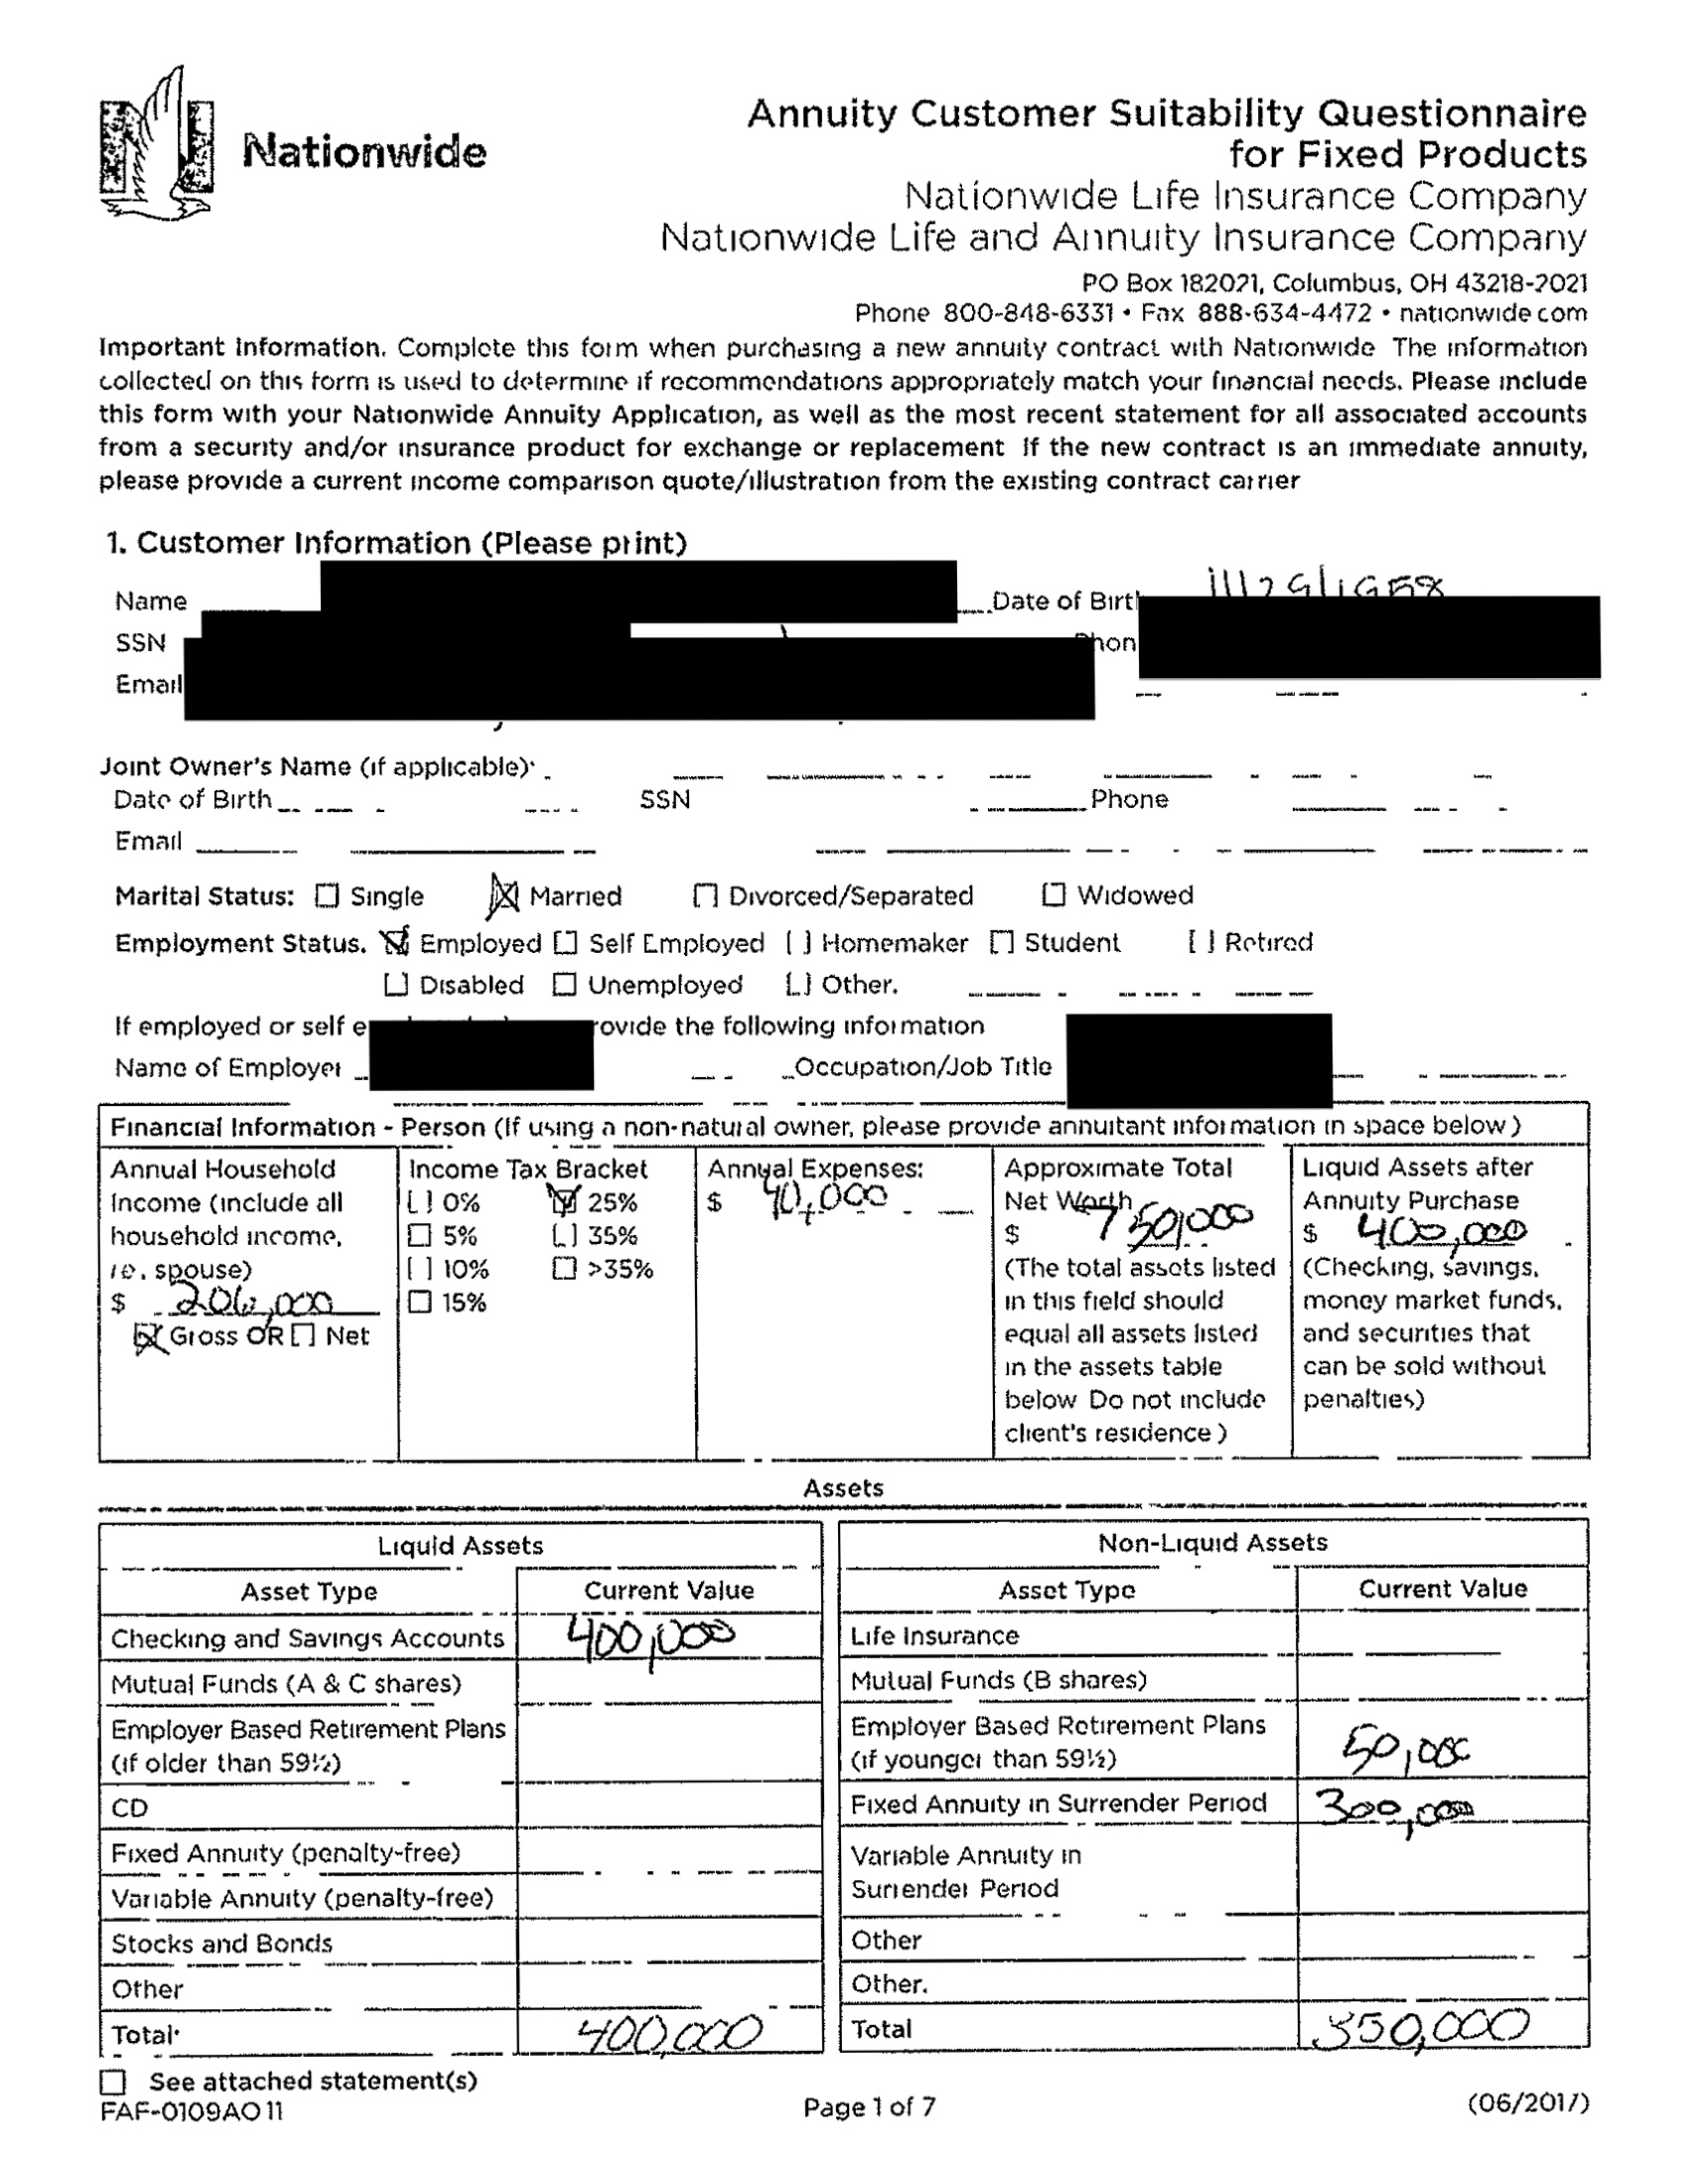 Nationwide
Annuity Customer Suitability Questionnaire
for Fixed Products
Nationwide Life Insurance Company
Nationwide Life and Annuity Insurance Company
PO Box 182021, Columbus, OH 43218-2021
Phone 800-848-6331 • Fax 888-634-4472 • nationwide com
Important Information. Complete this form when purchasing a new annuity contract with Nationwide The information
collected on this form is used to determine if recommendations appropriately match your financial needs. Please include
this form with your Nationwide Annuity Application, as well as the most recent statement for all associated accounts
from a security and/or insurance product for exchange or replacement If the new contract is an immediate annuity,
please provide a current income comparison quote/illustration from the existing contract carrier
1. Customer Information (Please print)
Name Date of Birth
SSN Phon
Email
Joint Owner's Name (if applicable)
Date of Birth SSN Phone
Email
Marital Status: Single Married Divorced/Separated Widowed
Employment Status. Employed Self Employed Homemaker Student Retired
Disabled Unemployed Other.
If employed or self e rovide the following information
Name of Employer Occupation/Job Title
Financial Information - Person (If using a non-natural owner, please provide annuitant information in space below)
Annual Household
Income (include all
household income,
ie. spouse)
$ 206,000
Gross OR Net
Income Tax Bracket
0% 25%
5% 35%
10% >35%
15%
Annual Expenses:
$ 40,000
Approximate Total
Net Worth
$ 750,000
(The total assets listed
in this field should
equal all assets listed
in the assets table
below Do not include
client's residence)
Liquid Assets after
Annuity Purchase
$ 400,000
(Checking, savings,
money market funds,
and securities that
can be sold without
penalties)
Assets
Liquid Assets
Asset Type Current Value
Checking and Savings Accounts 400,000
Mutual Funds (A & C shares)
Employer Based Retirement Plans
(if older than 59½)
CD
Fixed Annuity (penalty-free)
Variable Annuity (penalty-free)
Stocks and Bonds
Other
Total 400,000
Non-Liquid Assets
Asset Type Current Value
Life Insurance
Mutual Funds (B shares)
Employer Based Retirement Plans
(if younger than 59½) 50,000
Fixed Annuity in Surrender Period 300,000
Variable Annuity in
Surrender Period
Other
Other.
Total 350,000
See attached statement(s)
FAF-0109AO 11
Page 1 of 7
(06/2017)